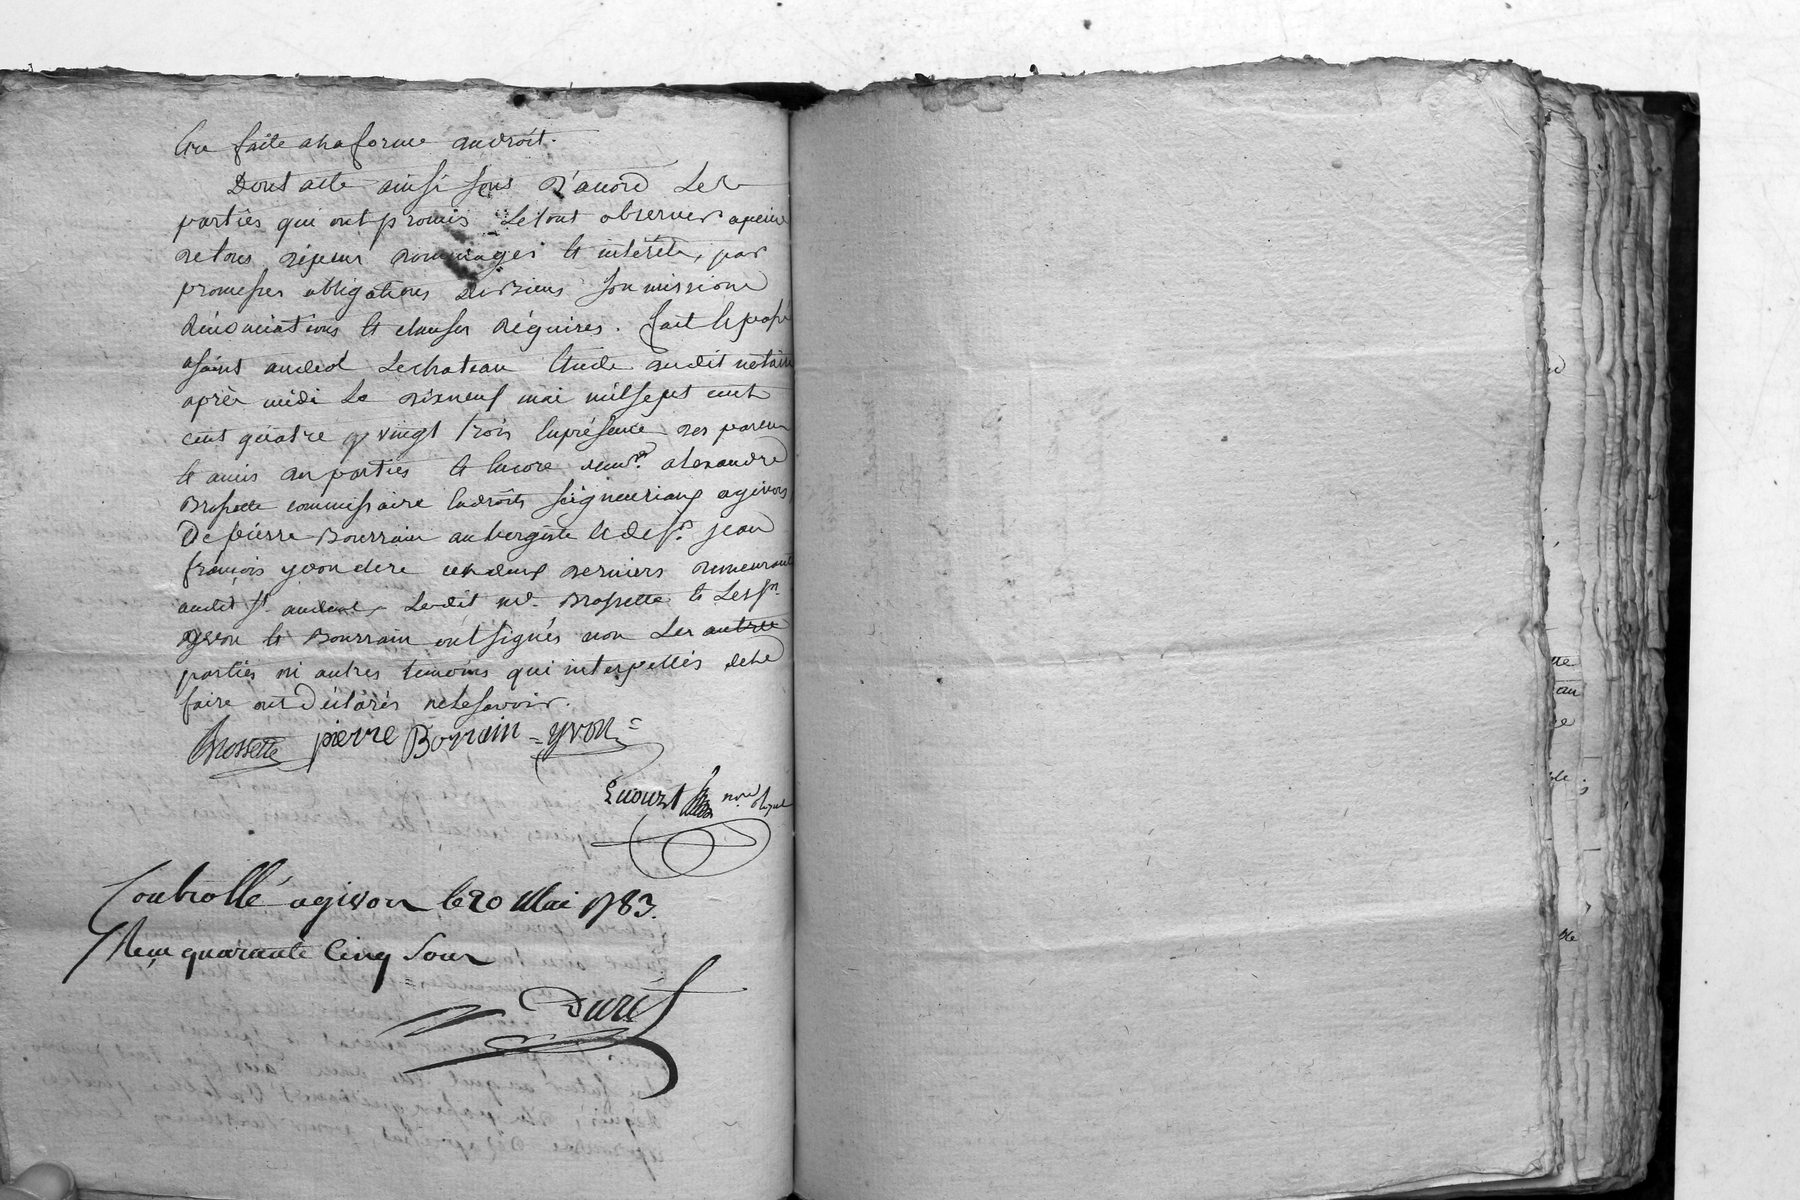 En faite a la forme du droit.
Dont acte ainsi sont d'accord les
parties qui ont promis le tout observer a peine
de tous dépens dommages et intérêts, par
promesses obligations de biens soumissions
rénonciations et clauses réquises. fait et passé
a saint andeol le chateau Etude dudit notaire
après midi le dixneuf mai mil sept cent
cent quatre vingt trois En présence des parens
et amis des parties et Encore de me. alexandre
Brossette commissaire En droits seigneuriaux a givors
De pierre Bourrain aubergiste et de sr. jean
françois yvon clerc ces deux derniers demeurants
audit st. andeol, Ledit me. Brossette et Les srs.
yvon et Bourrain ont signés non Les autres
parties ni autres temoins qui interpellés de Le
faire ont Déclarés ne Le savoir.
Brossette pierre Borrain = yvon =
nore
Controllé a givors le 20 Mai 1783.
Reçu quarante Cinq sous
Duret